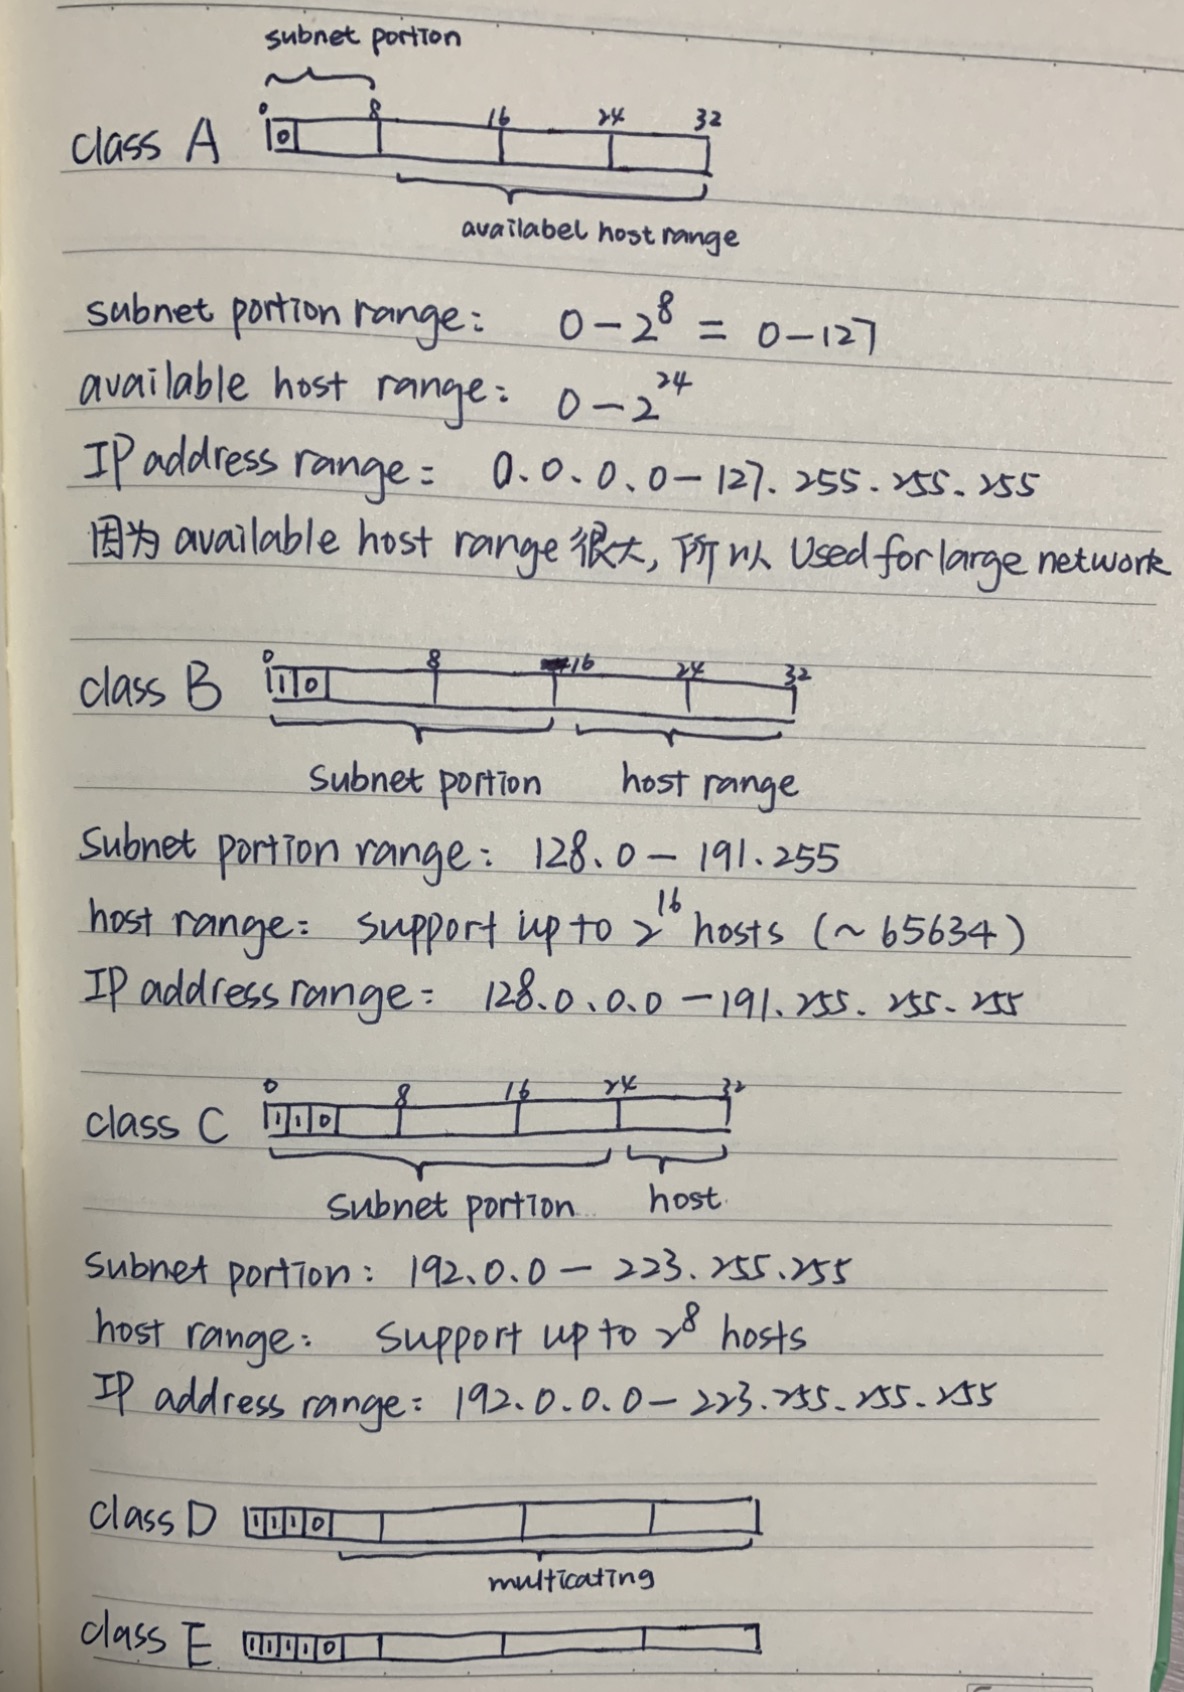 subnet portion
0 8 16 24 32
class A 0
availabel host range
subnet portion range: 0 - 2^8 = 0-127
available host range: 0 - 2^24
IP address range: 0.0.0.0 - 127.255.255.255
因为 available host range 很大, 所以 Used for large network
0 8 16 24 32
class B 1 0
Subnet portion host range
Subnet portion range: 128.0 - 191.255
host range: support up to 2^16 hosts (~65634)
IP address range: 128.0.0.0 - 191.255.255.255
0 8 16 24 32
class C 1 1 0
Subnet portion host
subnet portion: 192.0.0 - 223.255.255
host range: support up to 2^8 hosts
IP address range: 192.0.0.0 - 223.255.255.255
class D 1 1 1 0
multicating
class E 1 1 1 1 0